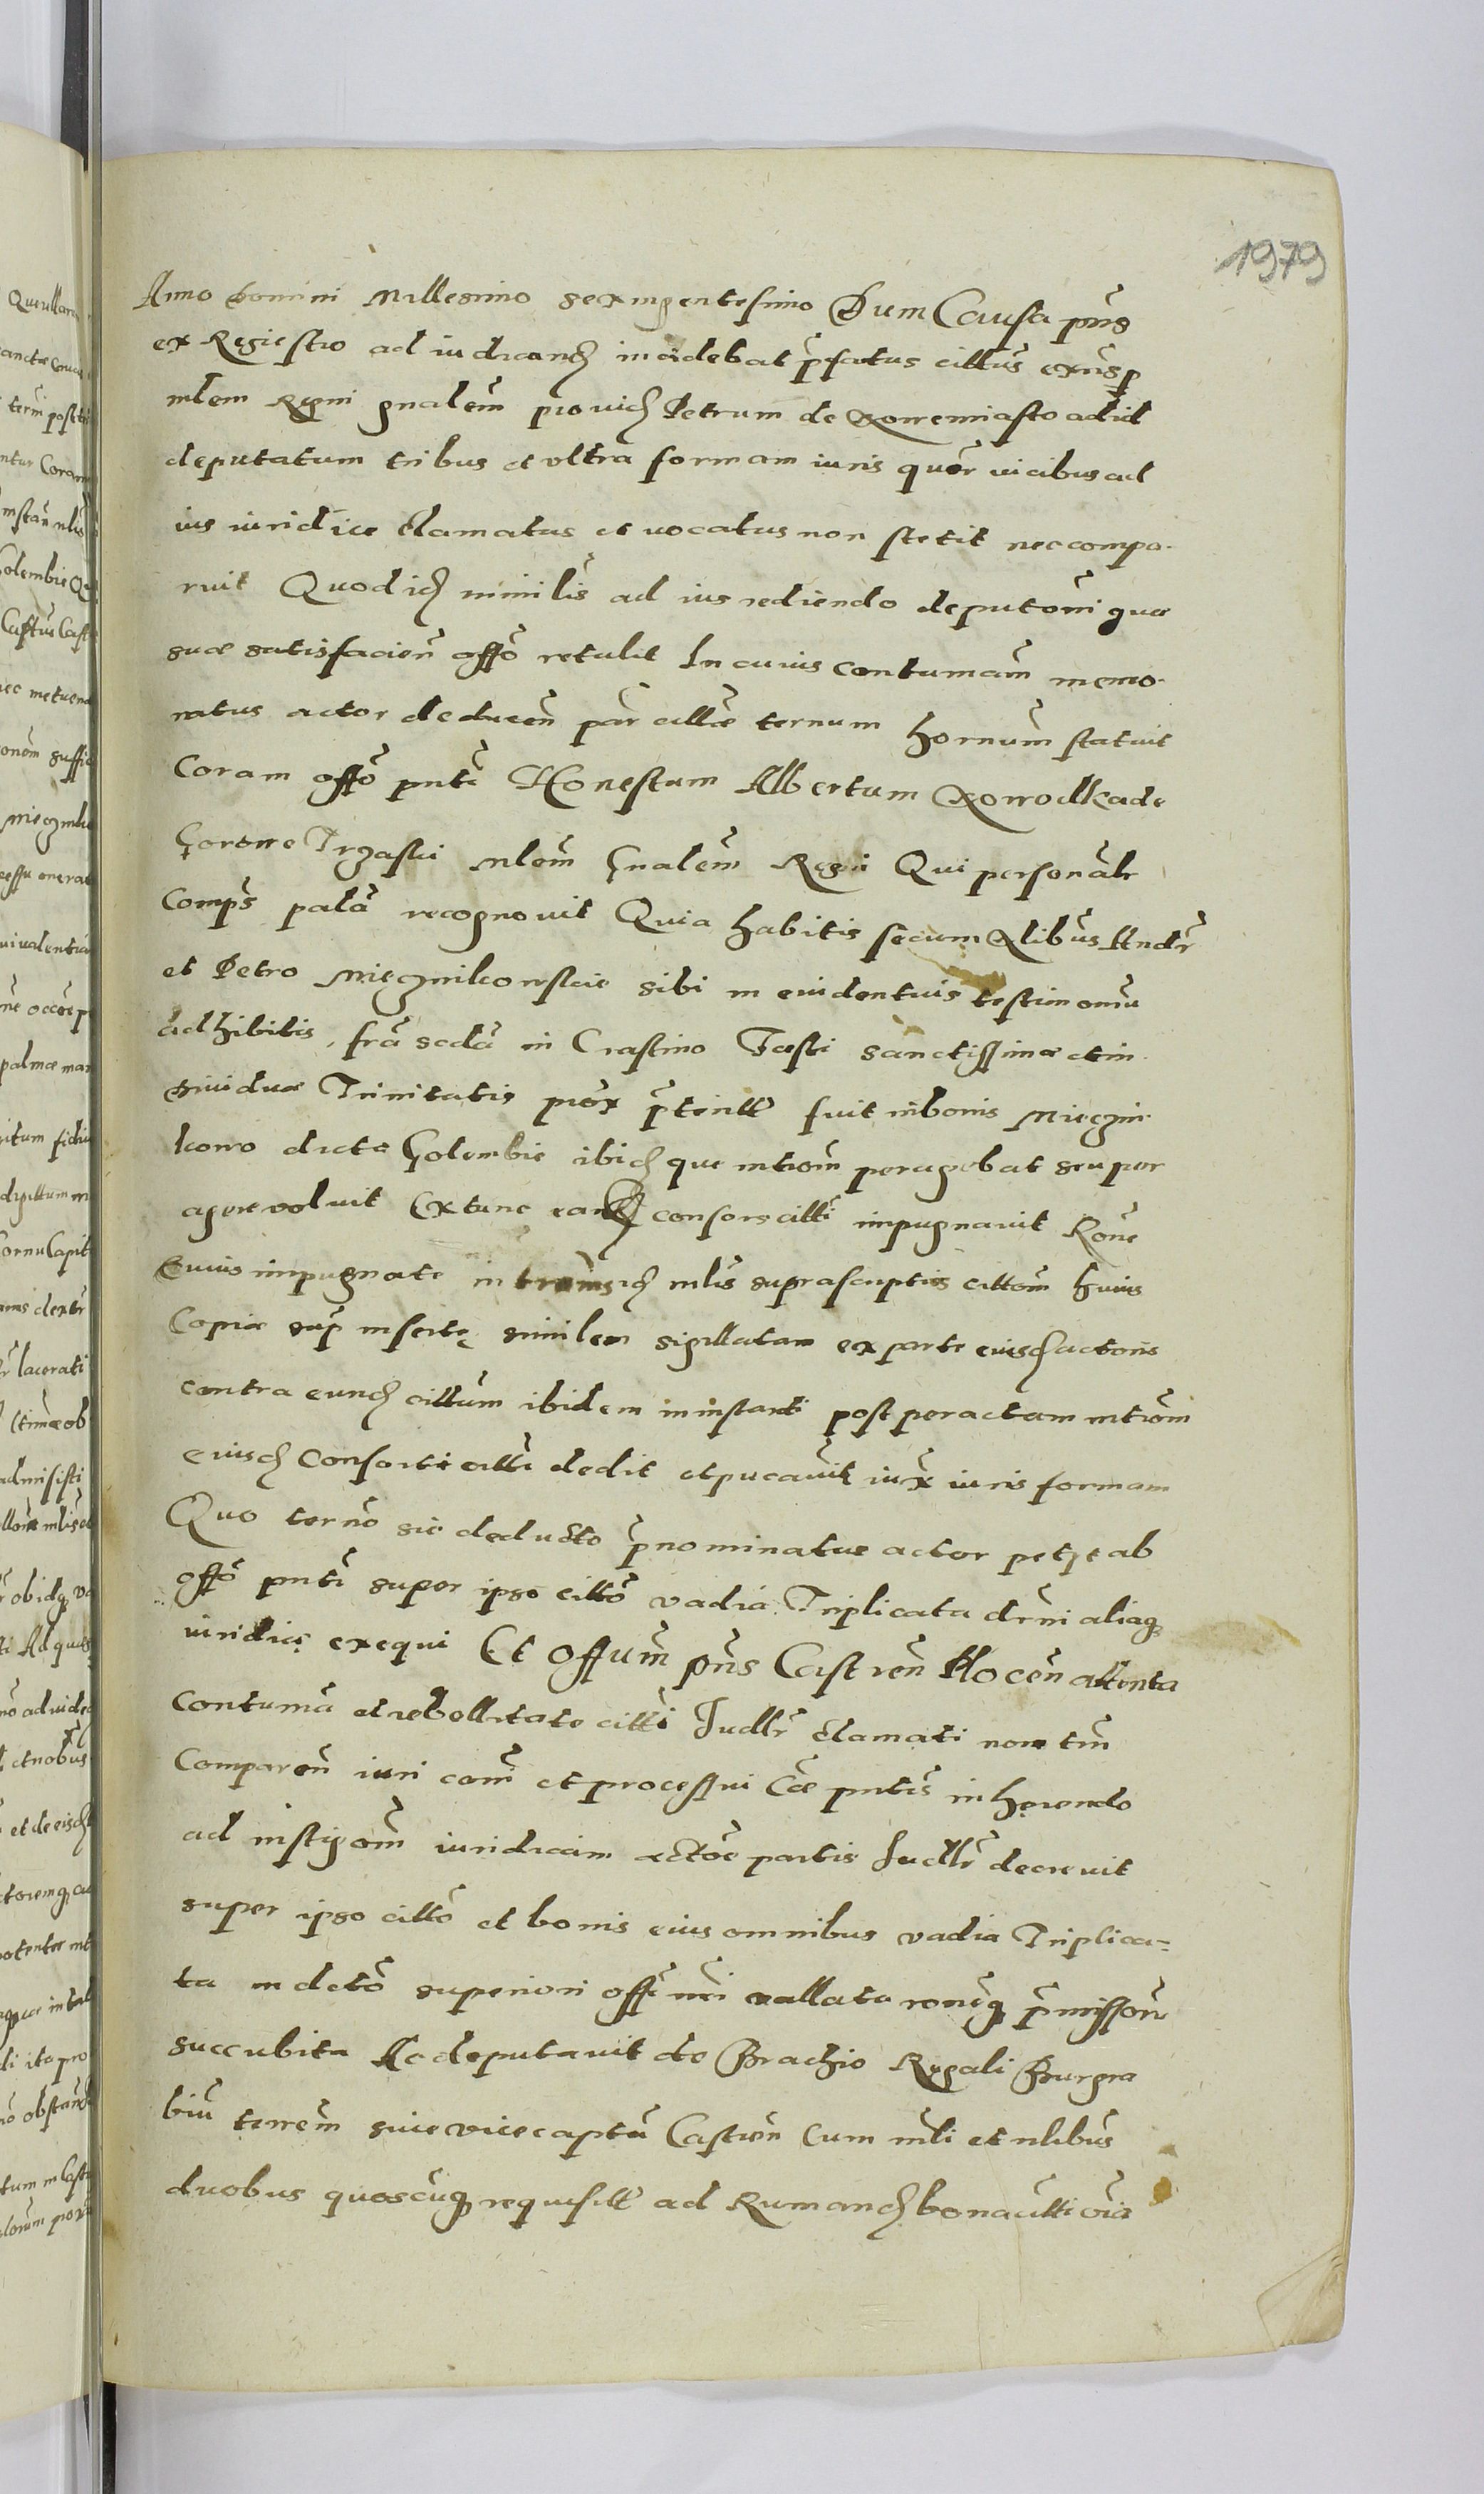 1979
Anno Domini Millesimo sexingentesimo Dum Causa pñs
ex Regiestro ad iudicand incidebat p̃fatus citus exñs p
mlem Regni gnalem prouid Petrum de Xowemiasto ad id
deputatum tribus et vltra formam iuris quer vicibus ad
ius iuridice clamatus et vocatus non stetit nec compa-
ruit Quod id ministlis ad ius rediendo deputoni quæ
suæ satisfacien offo retulit In cuius contumam memo-
ratus actor deducen par cittæ ternum hornum statuit
Coram offo pnti Honestum Albertum Xowodlka de
Gorowe Trzaski mlem Gnalem Regni Qui personalr
comps palã recognouit Quia habitis secum Xlibus Andr
et Petro Mięgnilkowskie sibi in euidentius testimoniũ
adhibitis, frã sedã in Crastino Festi sanctissimæ et in
diuiduæ Trinitatis prox p̃terit fuit in bonis Miegni-
kowo dicta Golembie ibid que mtrom peragebat seu per
agere voluit Ex tunc eand consors citti impugnauit Rone
Cuius impugnate mlis suprascriptis cittom huius
Copiæ sup insertę similem sigillatam ex parte eiusd actoris
contra eund cittum ibidem in instanti post peractam mtrom
eiusd Consorti citti dedit et pucauit iux iuris formam
Quo terno sic deducto p̃nominatus actor petyt ab
offo pnti super ipso citto vadia Triplicata dñni aliaq
iuridice exequi Et Offium pñs Castren Ploceñ attenta
Contuma et rebellitate citti Judlr clamati non tm
Comparen iuri com et processui Cæ pntis in hęrendo
ad instigom iuridicam actoē partis Judlr decreuit
super ipso citto et bonis eius omnibus vadia Triplica-
ta in dcto superiori offi nri vallata roneq p̃missoru
succubita Ac deputauit de Brachio Regali Burgra
biũ terrem siue vicecaptũ Castren Cum mli et nlibus
duobus quoscũq requisitt ad Rumand bona citti oĩa